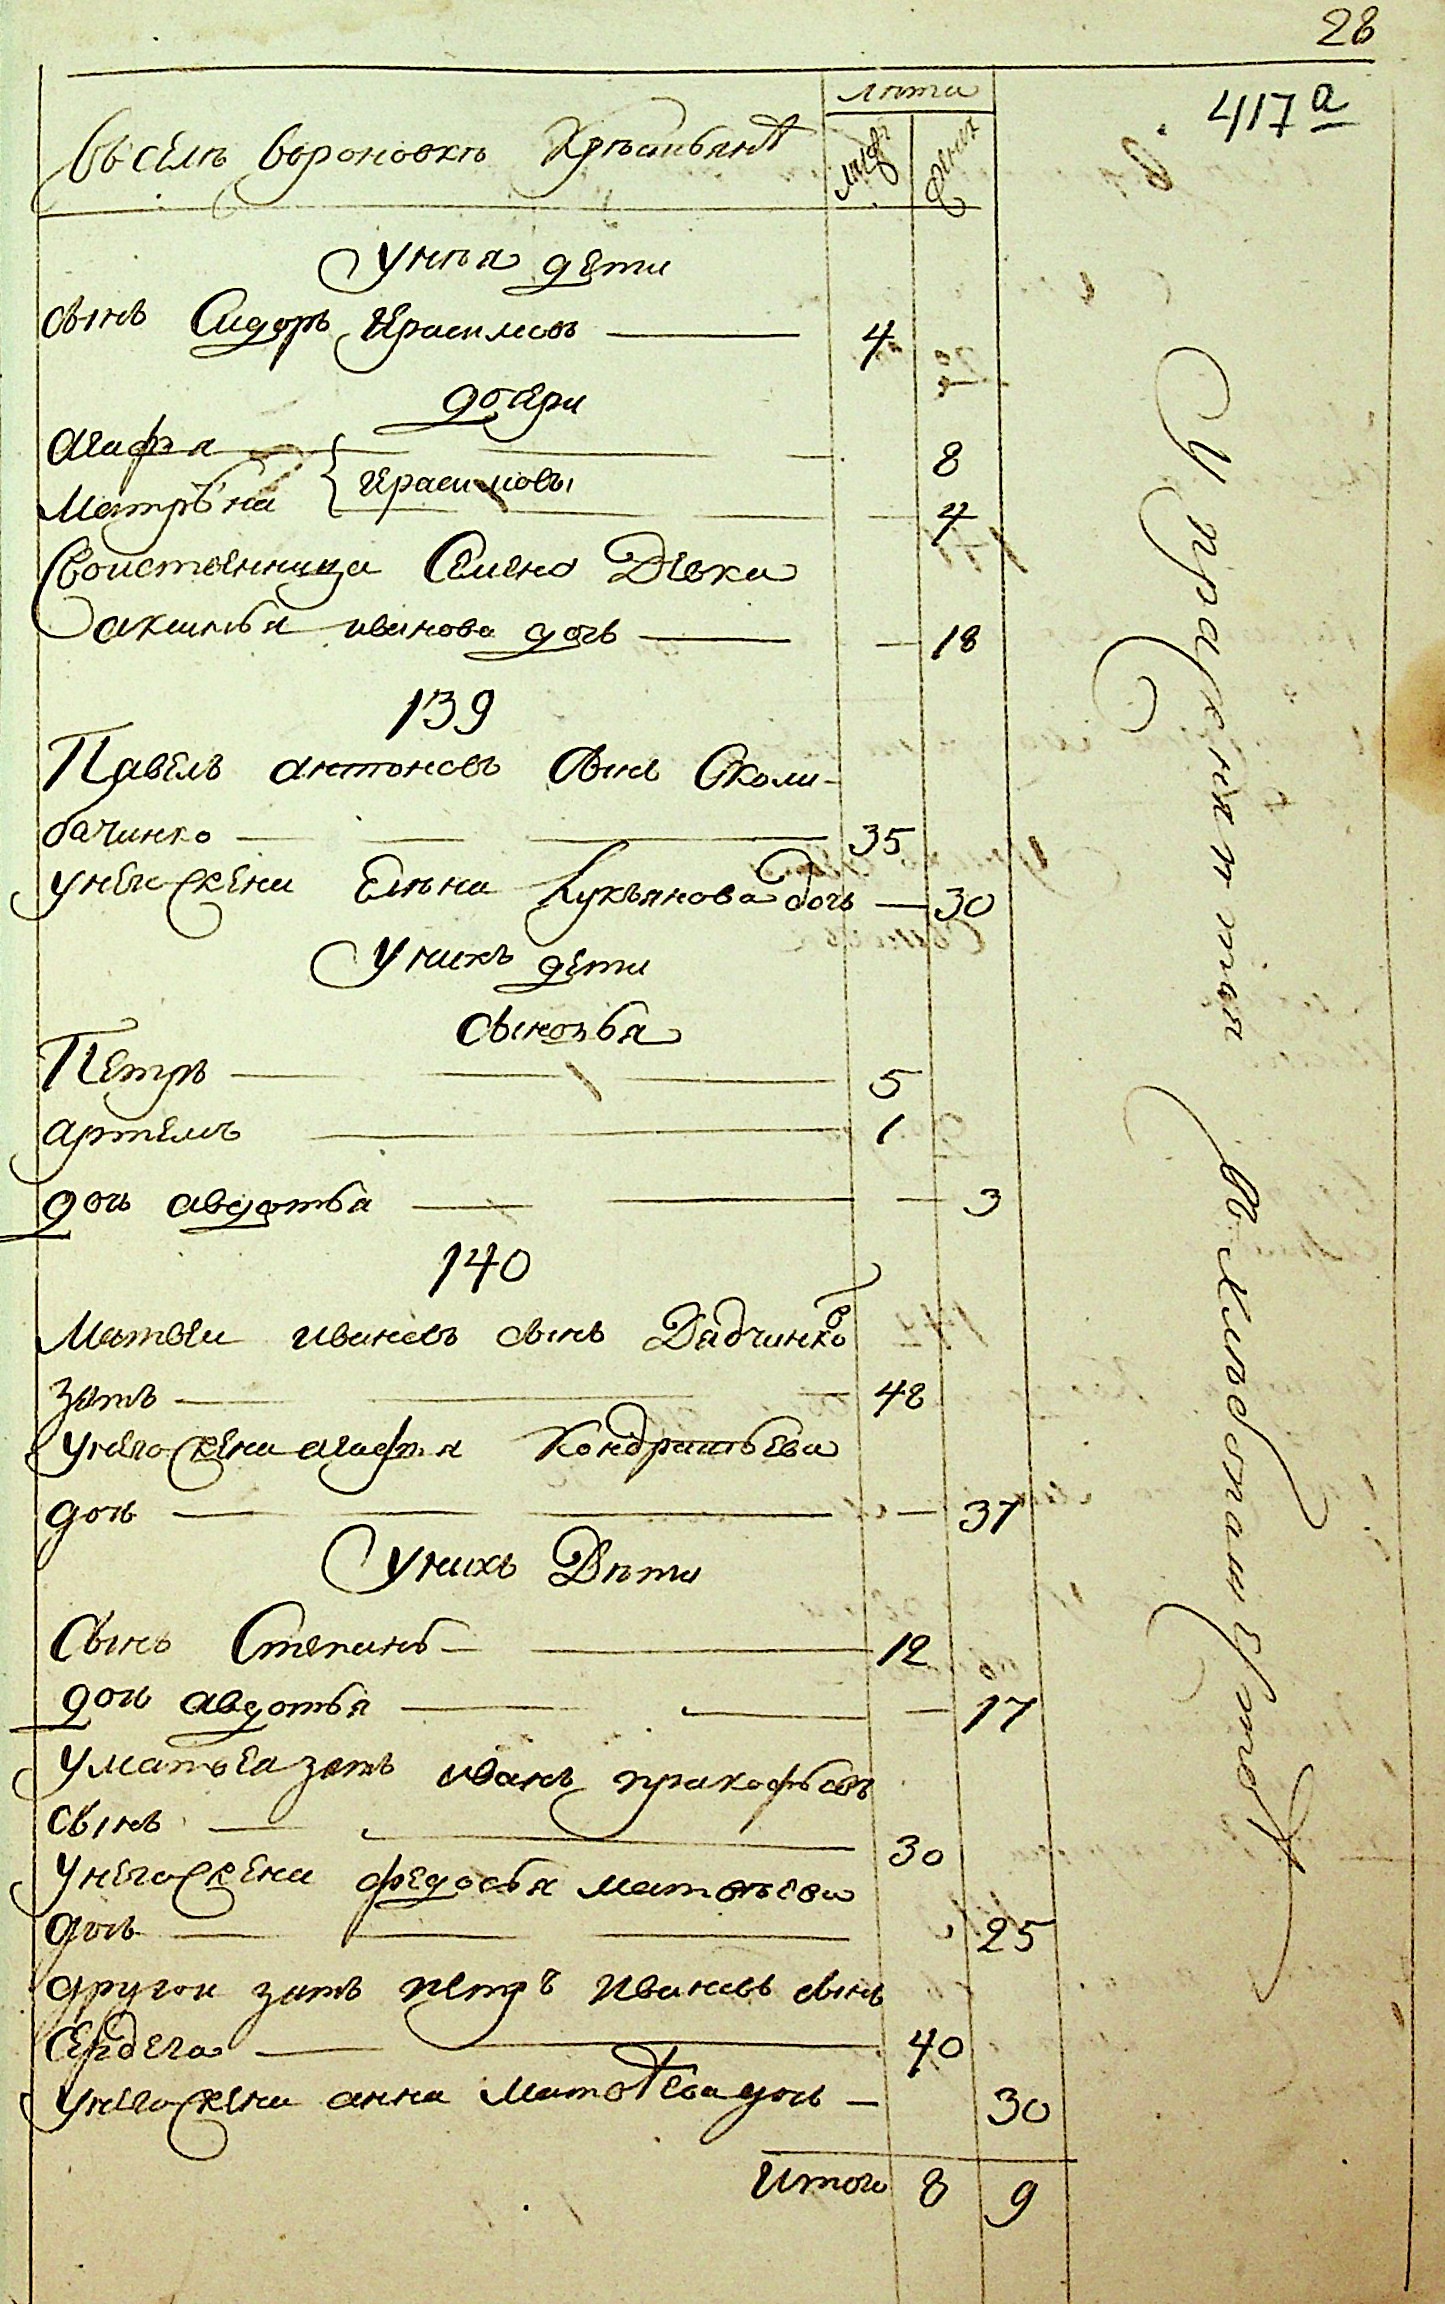 28
417 а
лѣта
Въ селѣ Вороновкѣ Крѣстьянъ
муж
женъ
У нея дети
сынъ Сидоръ Герасимовъ 4
дочери
Агафья 8
Герасимовы
Матрѣна 4
Свойственница Семено Девка
Акилина Иванова дочь 18
139
Павелъ Антоновъ сынъ Сколи-
бачинко 35
у него жена Елѣна Лукьянова дочь 30
У нихъ дети
сыновья
Петръ 5
Артемъ 1
дочь Авдотья 3
140
Матвеи Ивановъ сынъ Дадчинковъ
зять 48
у него жена Агафья Кондратьева
дочь 37
У нихъ Дѣти
Сынъ Степанъ 12
дочь Авдотья 17
у Матвея зять Иванъ Пракофьевъ
сынъ 30
у него жена Федосья Матвѣева
дочь 25
другои зять Петръ Ивановъ сынъ
Сердега 40
у него жена Анна Матвѣева дочь 30
Итого 8 9